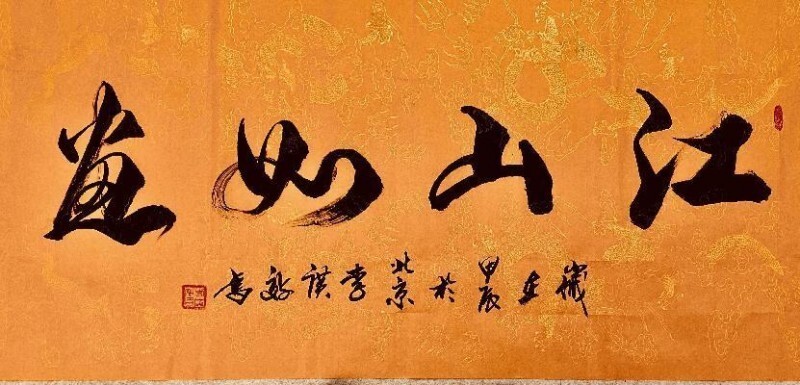 江山如畫
歲在甲辰於北京李